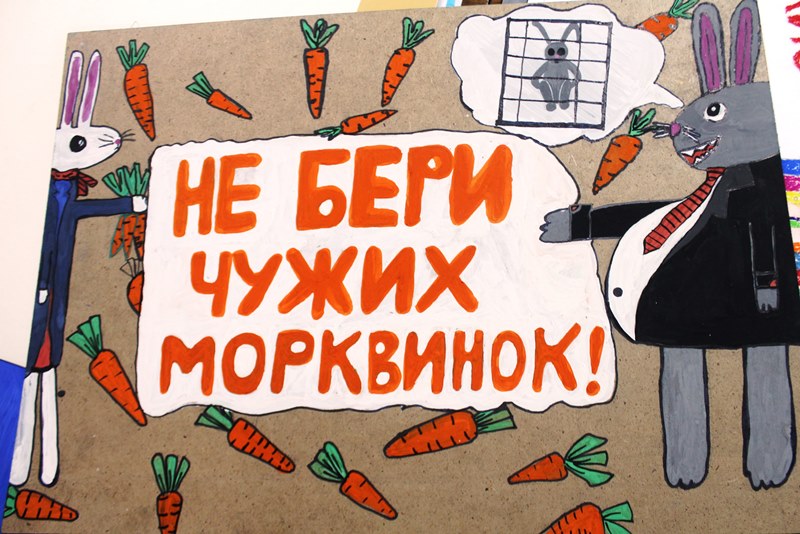 НЕ БЕРИ
ЧУЖИХ
МОРКВИНОК!